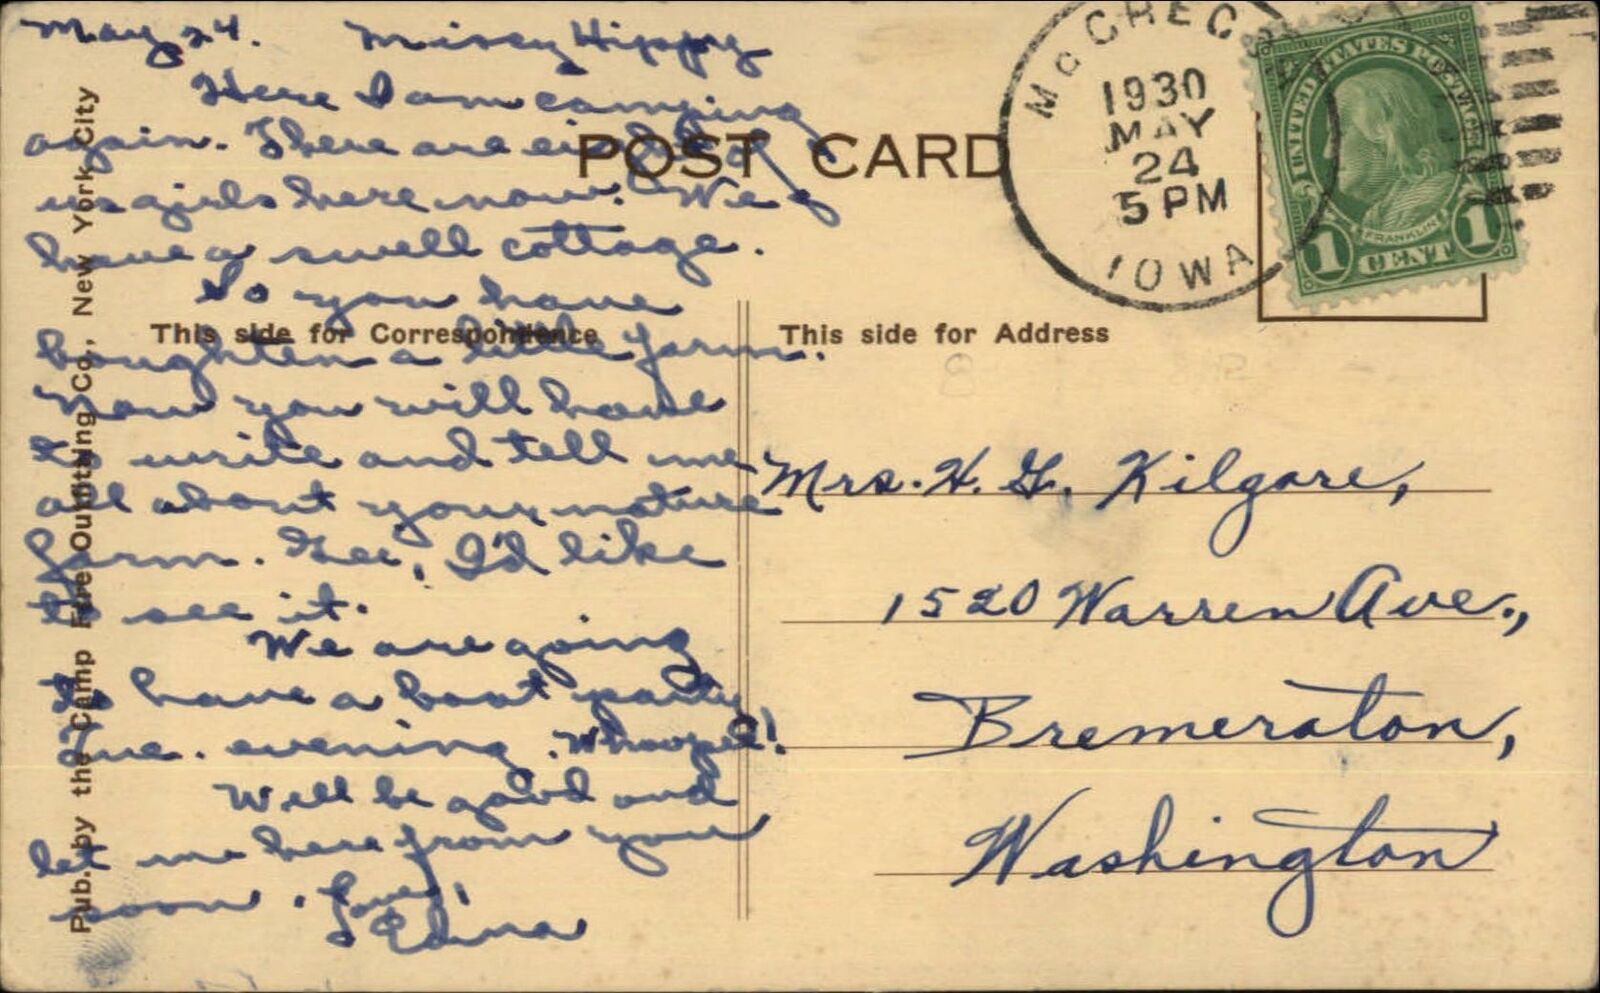 May 24. Missy Hippy
Here I am camping
again. There are eight of
us girls here now. We
have a swell cottage.
So you have
boughten a little farm.
Now you will have
to write and tell me
all about your nature
farm. Gee, I'd like
to see it.
We are going
to have a boat party
Tue. evening. Whoopee!
Will be good and
let me here from you
soon. Love,
Edna
POST CARD
This side for Correspondence
This side for Address
Pub. by the Camp Fire Outfitting Co., New York City
1930
MAY
24
5 PM
IOWA
UNITED STATES POSTAGE
FRANKLIN
1 CENT 1
Mrs. H. G. Kilgore,
1520 Warren Ave.,
Bremeraton,
Washington